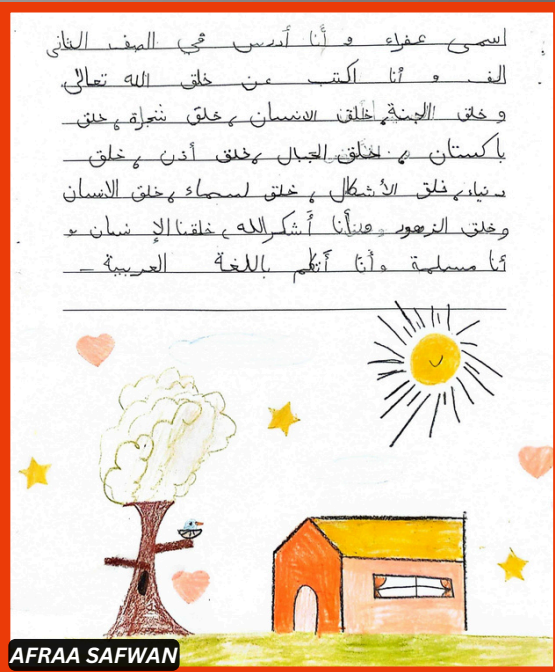 اسمى عفراء و أنا أدرس في الصف الثانى
الف و أنا اكتب عن خلق الله تعالى
و خلق الجنة، خلق الانسان، خلق شجراة، خلق
باكستان، خلق الجبال، خلق أذن، خلق
دنياء، خلق الأشكال، خلق لسماء، خلق الانسان
وخلق الزهور وأنا أشكر الله، خلقنا الإ نسان و
أنا مسلمة وأنا أتكلم باللغة العربية -
AFRAA SAFWAN